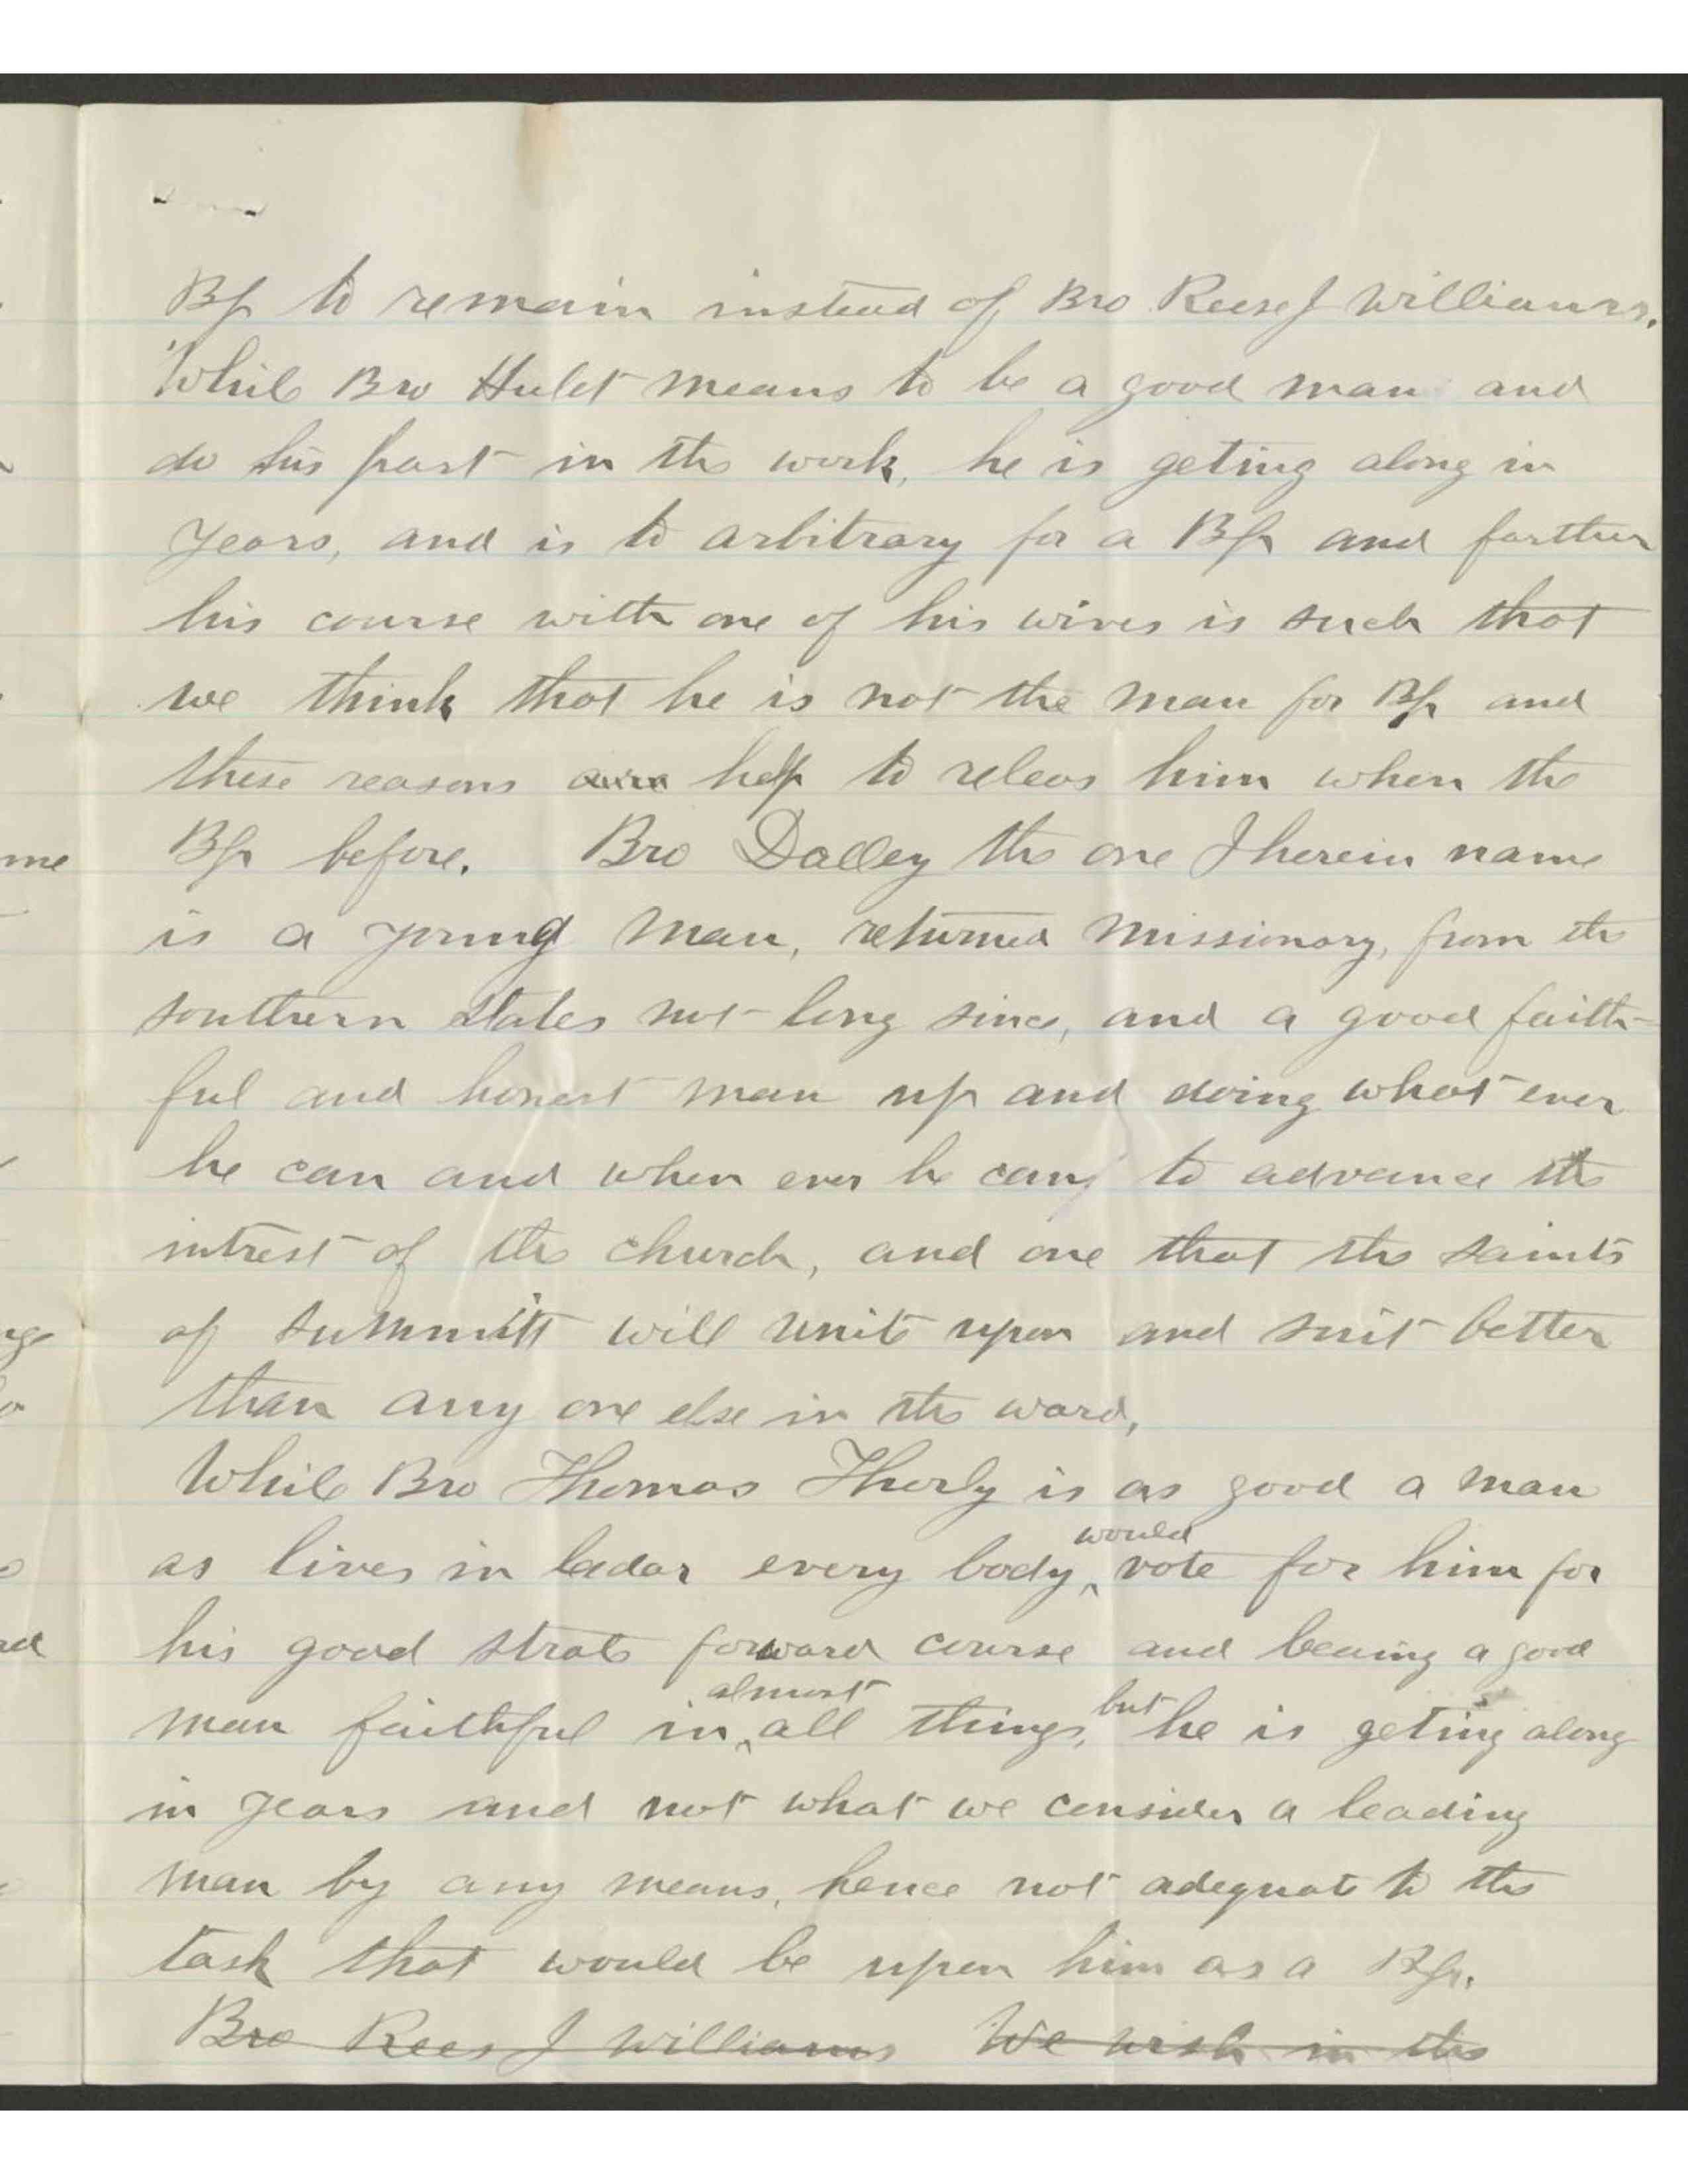 Bp to remain instead of Bro Reese J Williams.
While Bro Hulet means to be a good man and
do his part in the work, he is geting along in
years, and is to arbitrary for a Bp and farther
his course with one of his wives is such that
we think that he is not the man for Bp and
these reasons help to releas him when the
me Bp before. Bro Dalley the one I herein name
is a young man, returned missionary, from the
southern states not long since, and a good faith-
ful and honest man up and doing what ever
he can and when ever he can, to advance the
intrest of the church, and one that the saints
of Summitt will unite upon and suit better
than any one else in the ward,
While Bro Thomas Thorly is as good a man
would
as lives in Cedar every body ^ vote for him for
his good strate forward course and beaing a good
almost but
man faithful in ^ all things, he is geting along
in years and not what we consider a leading
man by any means, hence not adequate to the
task that would be upon him as a Bp.
Bro Rees J Williams We wish in the